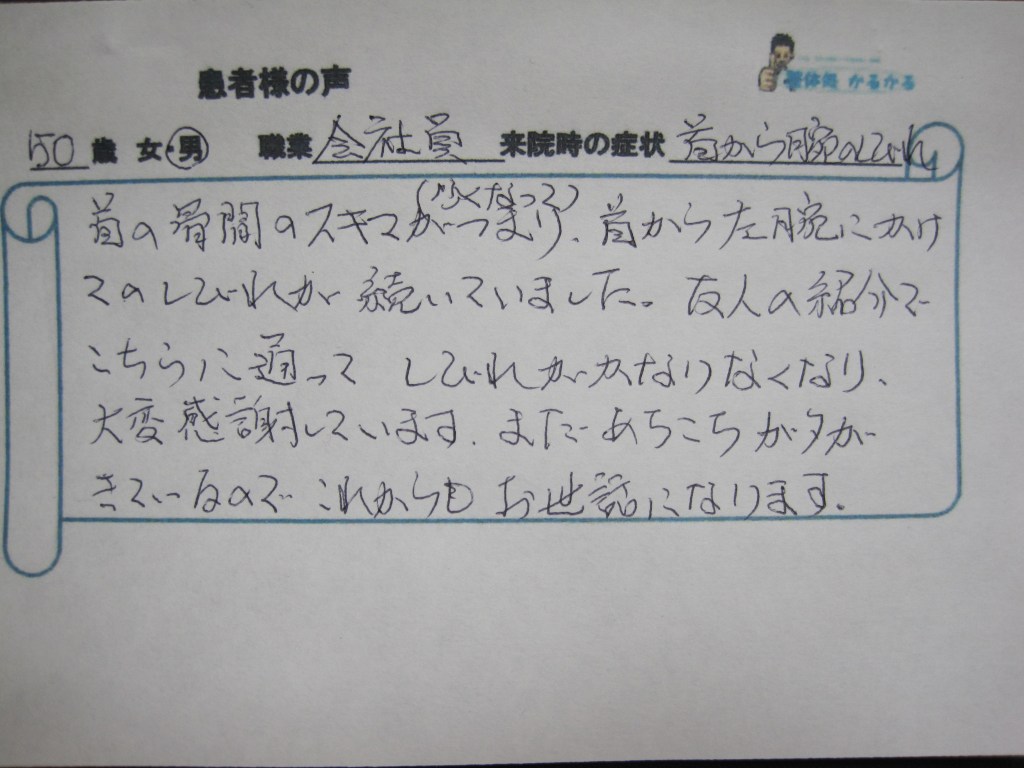 患者様の声
整体処 かるかる
50 歳 女・男 職業 会社員 来院時の症状 首から腕のしびれ
(なくなって)
首の骨間のスキマがつまり、首から左腕にかけ
てのしびれが続いていました。友人の紹介で
こちらに通って しびれがかなりなくなり、
大変感謝しています。まだあちこちガタが
きているので これからもお世話になります。